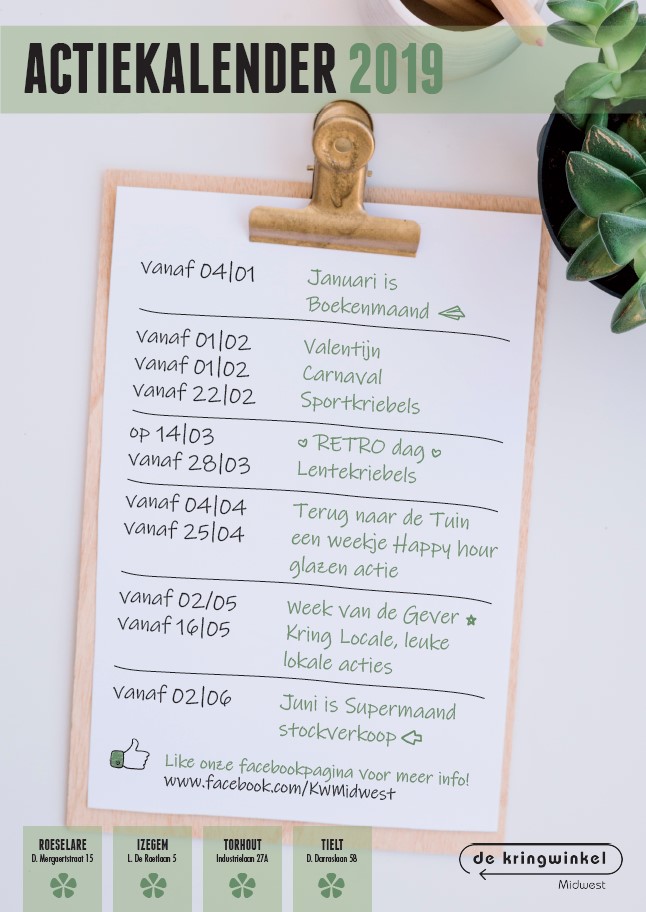 ACTIEKALENDER 2019
vanaf 04|01 Januari is
Boekenmaand
vanaf 01|02 Valentijn
vanaf 01|02 Carnaval
vanaf 22|02 Sportkriebels
op 14|03 RETRO dag
vanaf 28|03 Lentekriebels
vanaf 04|04 Terug naar de Tuin
vanaf 25|04 een weekje Happy hour
glazen actie
vanaf 02/05 Week van de Gever
vanaf 16|05 Kring Locale, leuke
lokale acties
vanaf 02|06 Juni is Supermaand
stockverkoop
Like onze facebookpagina voor meer info!
www.facebook.com/KWMidwest
ROESELARE
D. Mergaertstraat 15
IZEGEM
L. De Raetlaan 5
TORHOUT
Industrielaan 27A
TIELT
D. Darroslaan 58
de kringwinkel
Midwest